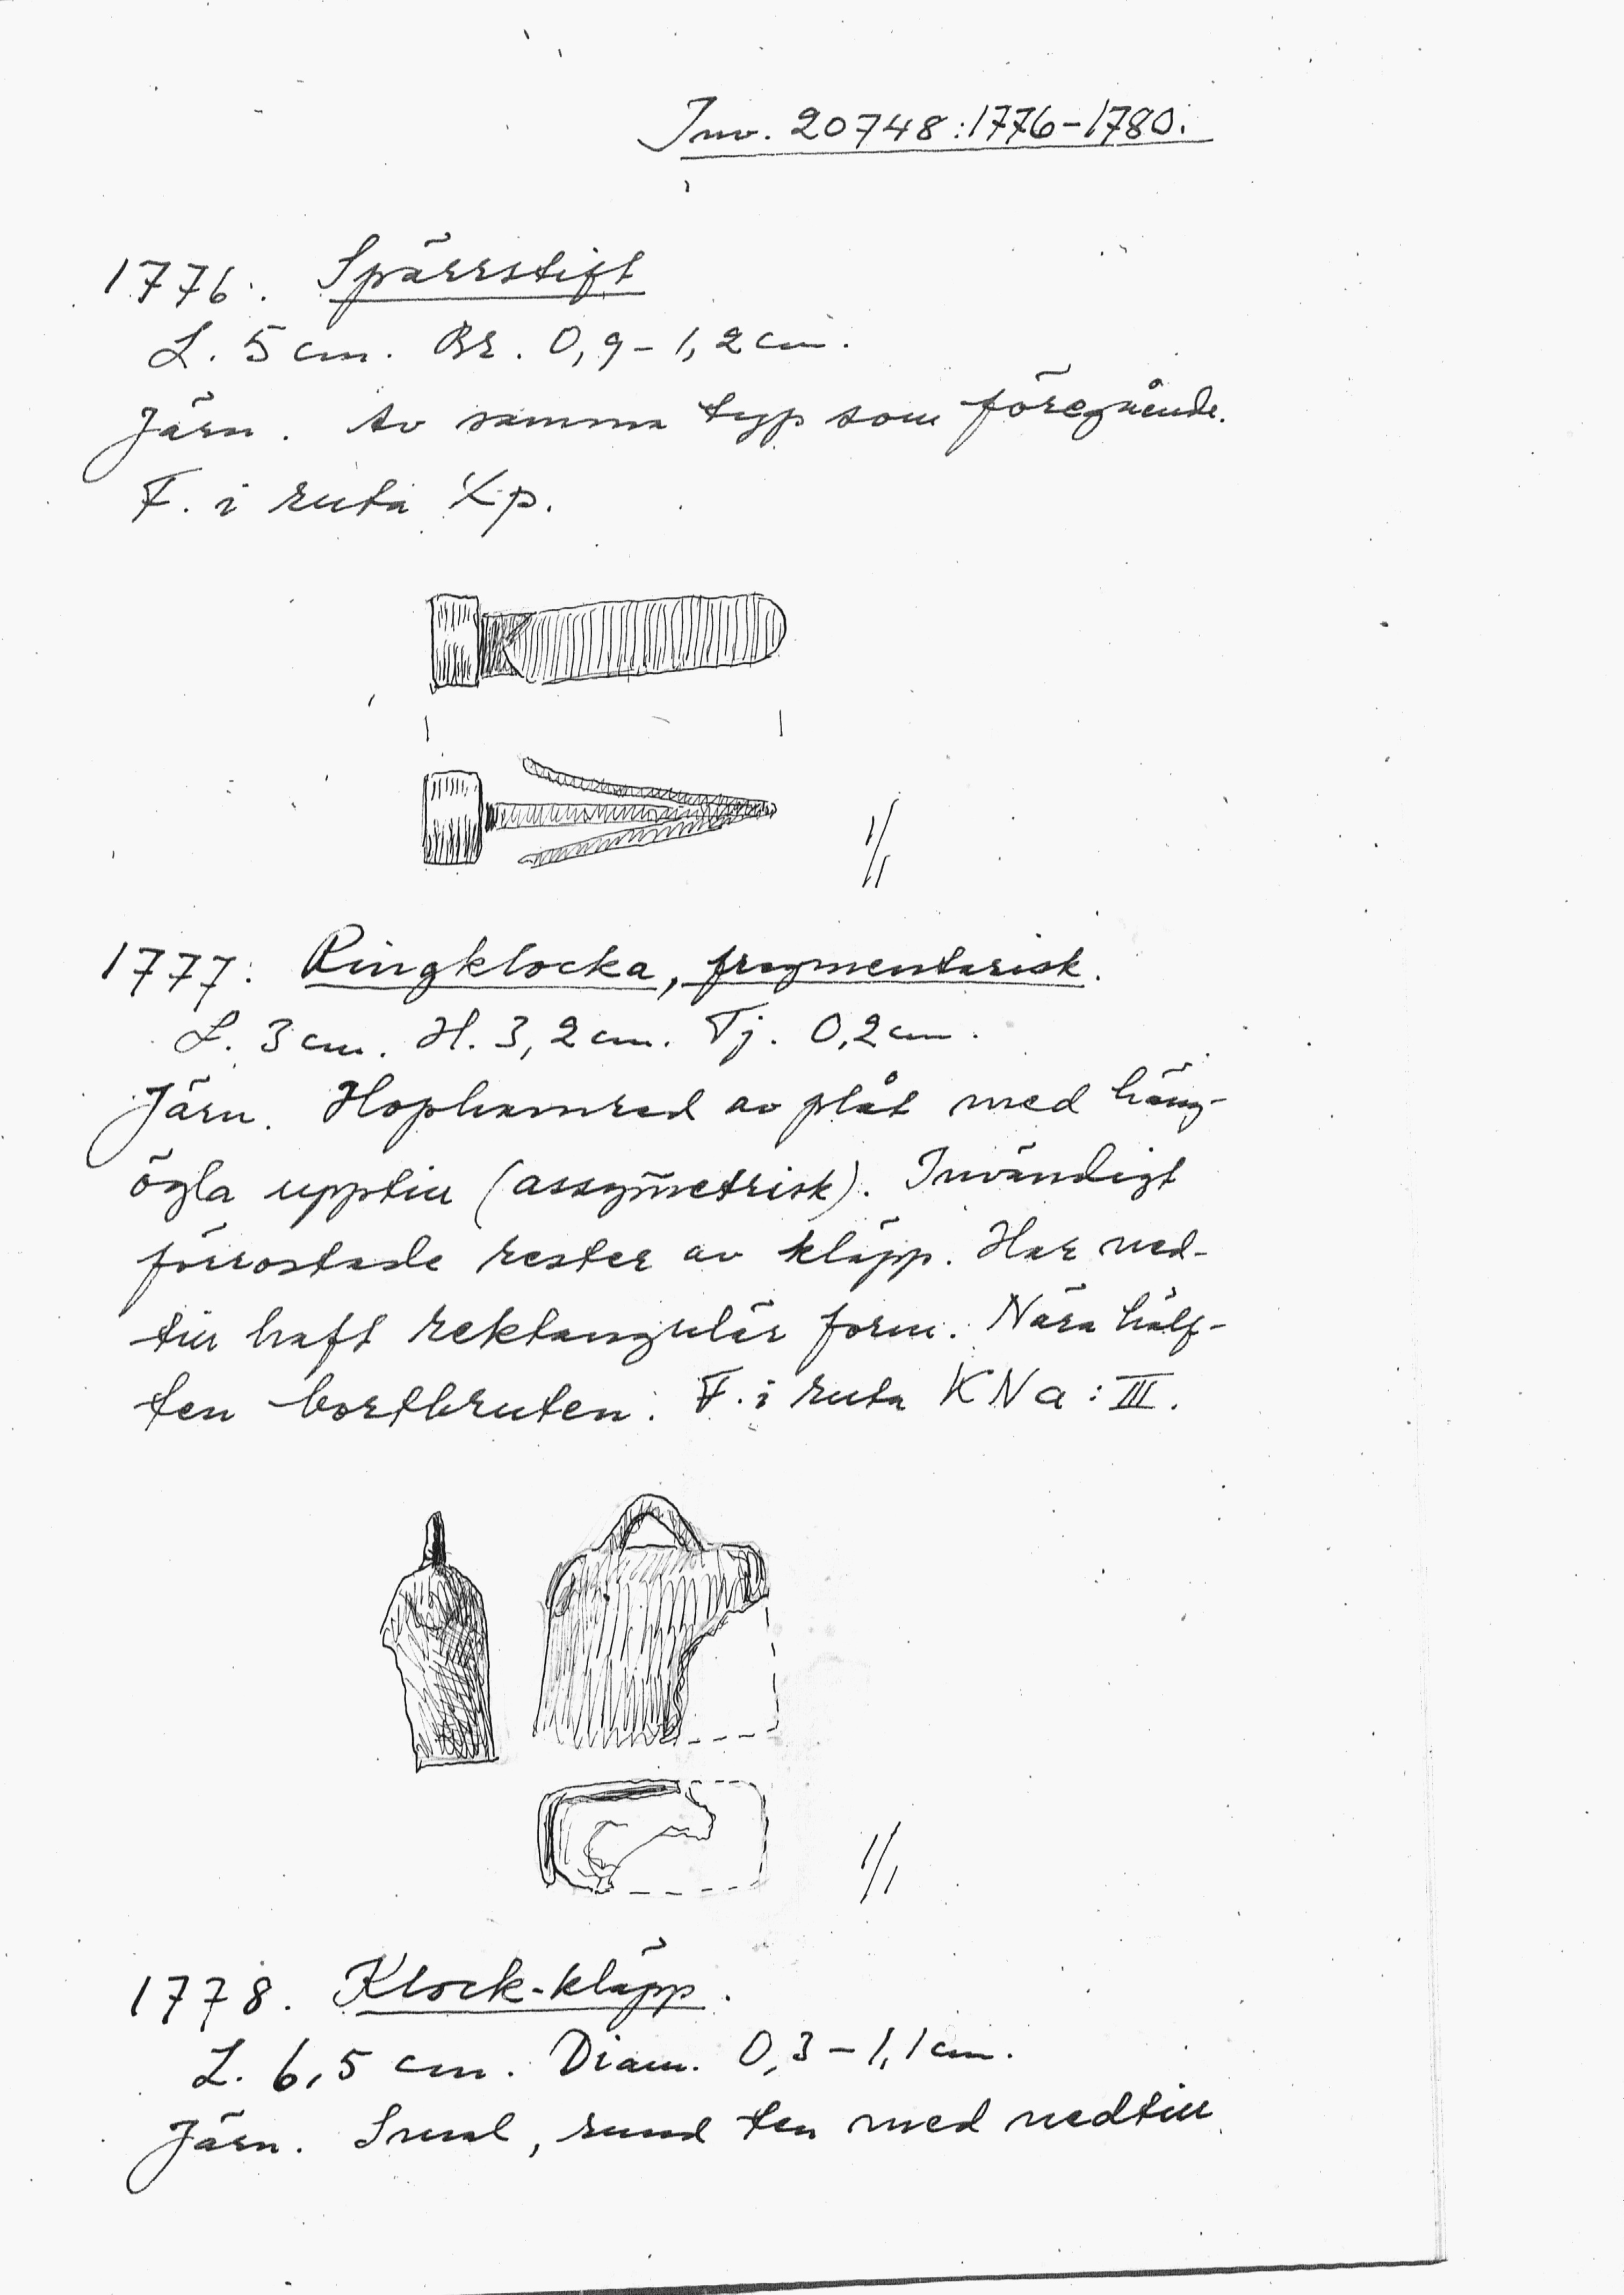 Inv. 20748:1776-1780.
1776. Spärrstift
L. 5 cm. Br. 0,9-1,2 cm.
Järn. Av samma typ som föregående.
F. i ruta Xp.
1/1
1777. Ringklocka, fragmentarisk.
L. 3 cm. H. 3,2 cm. Tj. 0,2 cm.
Järn. Hophamrad av plåt med häng-
ögla upptill (assymetrisk). Invändigt
förrostade rester av kläpp. Har ned-
till haft rektangulär form. Nära hälf-
ten bortbruten. F. i ruta KNa:III.
1/1
1778. Klock-kläpp.
L. 6,5 cm. Diam. 0,3-1,1 cm.
Järn. Smal, rund ten med nedtill